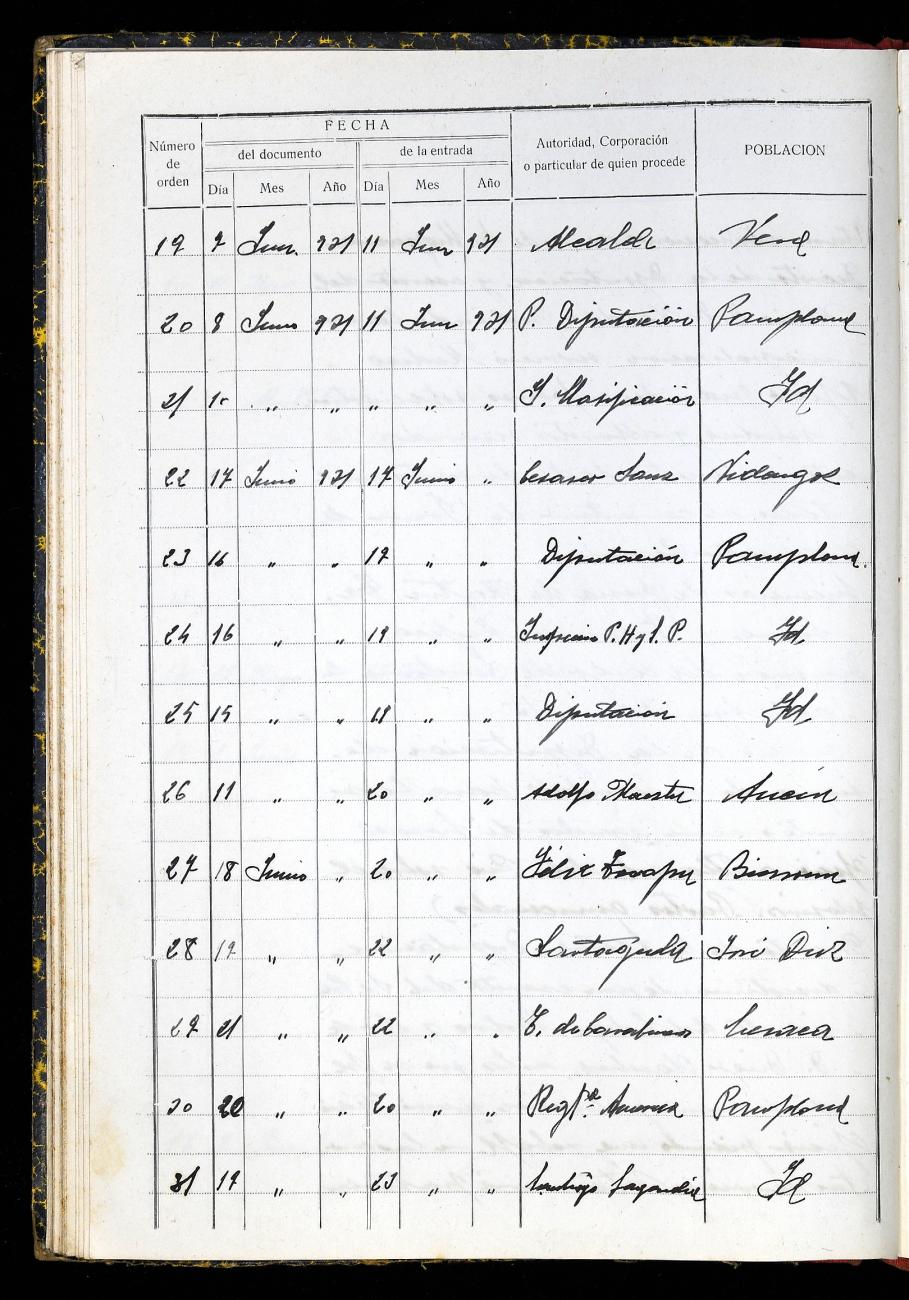 FECHA
Número de orden
del documento
de la entrada
Autoridad, Corporación o particular de quien procede
POBLACION
Día Mes Año Día Mes Año
19 9 Jun. 931 11 Jun 931 Alcalde Vera
20 8 Junio 931 11 Jun 931 P. Diputación Pamplona
21 1r „ „ „ „ „ Id
22 17 Junio 931 17 Junio „ Cesareo Sanz Vidangoz
23 16 „ „ 17 „ „ Diputación Pamplona.
24 16 „ „ 19 „ „ P. H y S. P. Id
25 15 „ „ 18 „ „ Diputación Id
26 11 „ „ 20 „ „ Adolfo Maestu Ancín
27 18 Junio „ 20 „ „ Félix
28 17 „ „ 22 „ „ Santagueda José Diez
29 21 „ „ 22 „ „ T. de Carabineros Lesaca
30 20 „ „ 20 „ „ America Pamplona
31 17 „ „ 23 „ „ Santiago Id